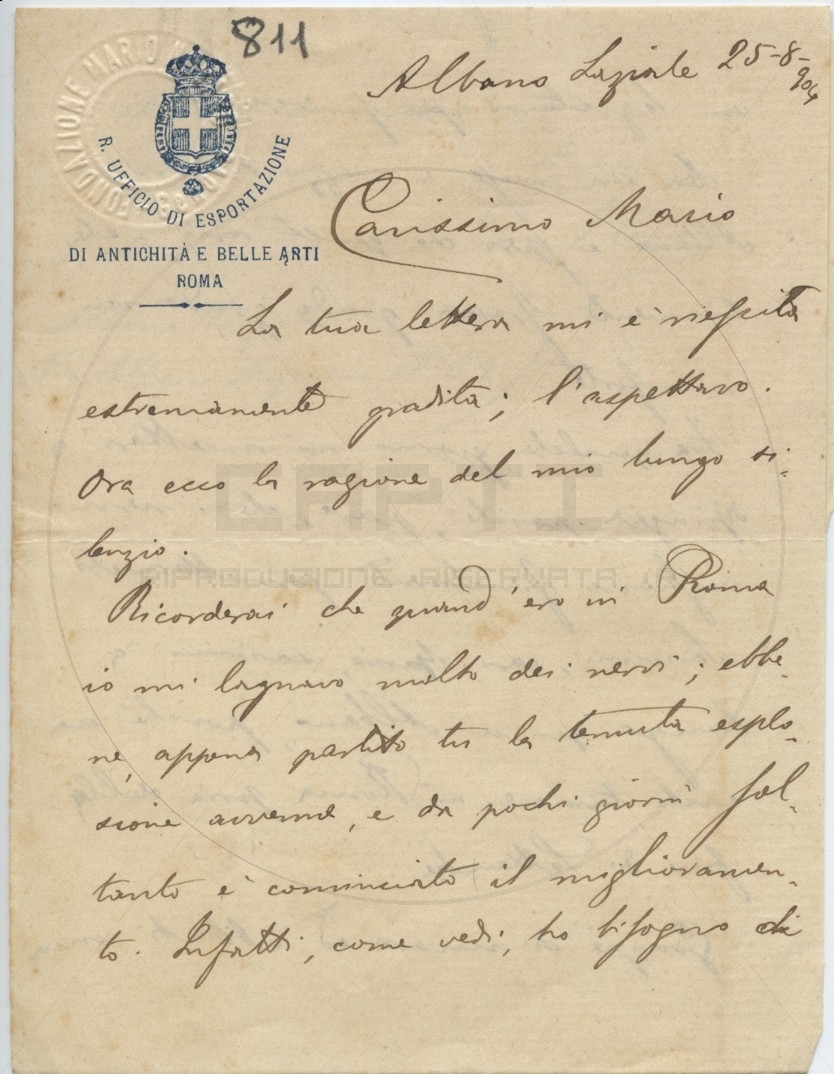 811
FONDAZIONE MARIO
R. UFFICIO DI ESPORTAZIONE
DI ANTICHITÀ E BELLE ARTI
ROMA
Albano Laziale 25-8-904
Carissimo Mario
La tua lettera mi è riescita
estremamente gradita; l'aspettavo.
Ora ecco la ragione del mio lungo si-
lenzio.
Ricorderai che quand'ero in Roma
io mi lagnavo molto dei nervi; ebbe-
ne, appena partito tu la temuta esplo-
sione avvenne, e da pochi giorni sol-
tanto è cominciato il miglioramen-
to. Infatti, come vedi, ho bisogno di
RIPRODUZIONE RISERVATA